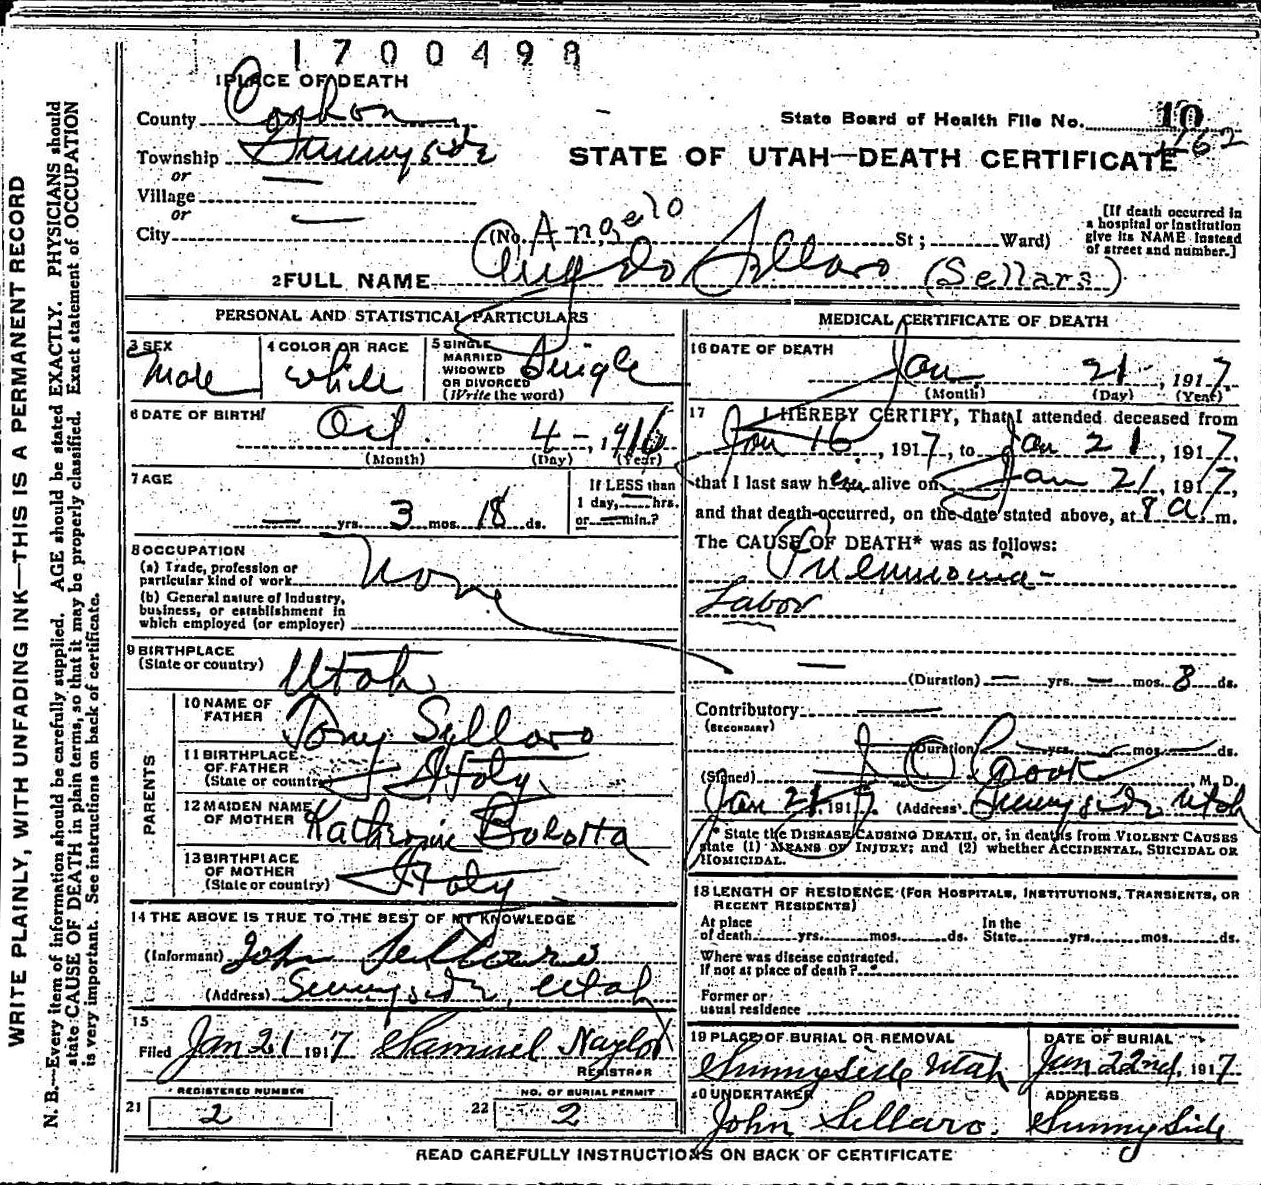 1700498
1 PLACE OF DEATH
County Carbon
State Board of Health File No. 10
162
Township Sunnyside
or
STATE OF UTAH—DEATH CERTIFICATE
Village
or
City (No. St; Ward)
[If death occurred in a hospital or institution give its NAME instead of street and number.]
Angelo
2 FULL NAME Angelo Sellaro (Sellars)
PERSONAL AND STATISTICAL PARTICULARS
3 SEX
Male
4 COLOR OR RACE
White
5 SINGLE MARRIED WIDOWED OR DIVORCED (Write the word)
Single
6 DATE OF BIRTH
Oct. 4 - , 1916
(Month) (Day) (Year)
7 AGE
— yrs. 3 mos. 18 ds.
If LESS than 1 day, — hrs. or — min.?
8 OCCUPATION
(a) Trade, profession or particular kind of work None
(b) General nature of industry, business, or establishment in which employed (or employer)
9 BIRTHPLACE
(State or country) Utah
PARENTS
10 NAME OF FATHER Tony Sellaro
11 BIRTHPLACE OF FATHER (State or country) Italy
12 MAIDEN NAME OF MOTHER Katherine Bolotta
13 BIRTHPLACE OF MOTHER (State or country) Italy
14 THE ABOVE IS TRUE TO THE BEST OF MY KNOWLEDGE
(Informant) John
(Address) Sunnyside, Utah
15
Filed Jan 21 1917 Samuel Naylor
REGISTRAR
REGISTERED NUMBER
21 2
NO. OF BURIAL PERMIT
22 2
MEDICAL CERTIFICATE OF DEATH
16 DATE OF DEATH
Jan. 21 , 1917.
(Month) (Day) (Year)
17 I HEREBY CERTIFY, That I attended deceased from
Jan 16, 1917, to Jan 21, 1917,
that I last saw him alive on Jan 21, 1917,
and that death occurred, on the date stated above, at 8 a. m.
The CAUSE OF DEATH* was as follows:
Pneumonia -
Labor
(Duration) — yrs. — mos. 8 ds.
Contributory
(SECONDARY)
(Duration) yrs. mos. ds.
(Signed) J O Cook M. D.
Jan 21, 1917. (Address) Sunnyside Utah
* State the DISEASE CAUSING DEATH, or, in deaths from VIOLENT CAUSES
state (1) MEANS OF INJURY; and (2) whether ACCIDENTAL, SUICIDAL OR
HOMICIDAL.
18 LENGTH OF RESIDENCE (FOR HOSPITALS, INSTITUTIONS, TRANSIENTS, OR RECENT RESIDENTS)
At place of death yrs. mos. ds. In the State yrs. mos. ds.
Where was disease contracted, If not at place of death?
Former or usual residence
19 PLACE OF BURIAL OR REMOVAL
Sunnyside Utah
DATE OF BURIAL
Jan 22nd, 1917
20 UNDERTAKER
John Sellaro.
ADDRESS
Sunny Side
READ CAREFULLY INSTRUCTIONS ON BACK OF CERTIFICATE
WRITE PLAINLY, WITH UNFADING INK—THIS IS A PERMANENT RECORD
N. B.—Every item of information should be carefully supplied. AGE should be stated EXACTLY. PHYSICIANS should
state CAUSE OF DEATH in plain terms, so that it may be properly classified. Exact statement of OCCUPATION
is very important. See instructions on back of certificate.